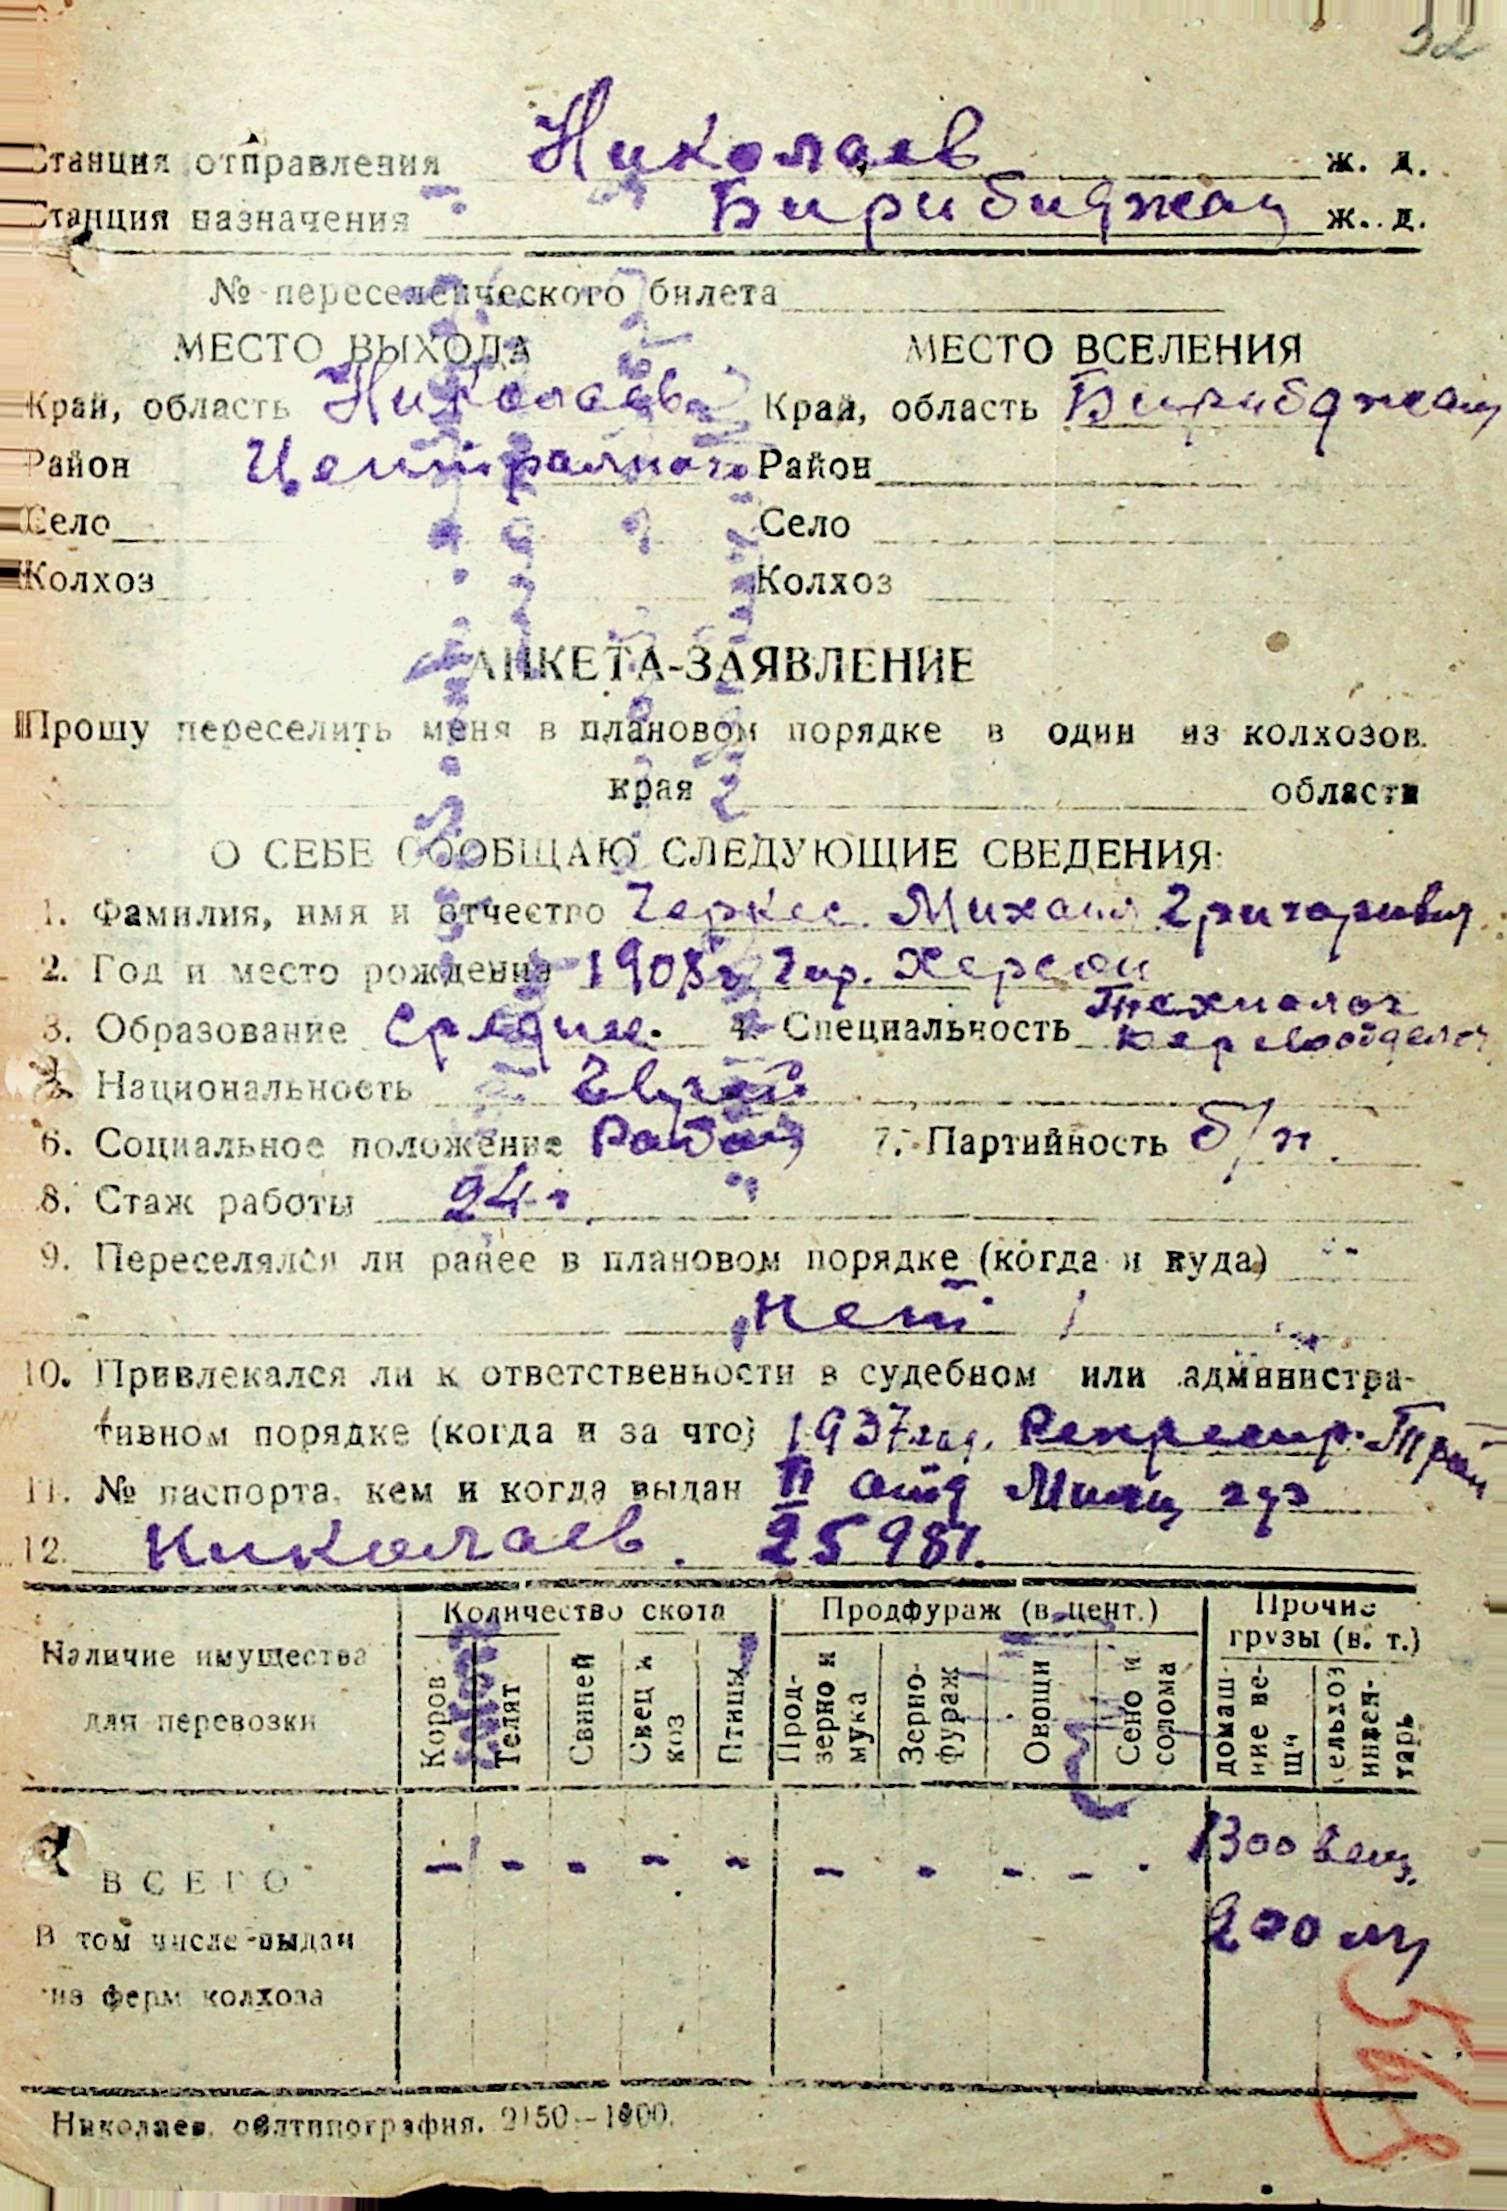 32
Станция отправления Николаев ж. д.
Станция назначения Биробиджан ж. д.
№ переселенческого билета
МЕСТО ВЫХОДА МЕСТО ВСЕЛЕНИЯ
Край, область Николаев Край, область Бирибджан
Район Центральном Район
Село Село
Колхоз Колхоз
АНКЕТА-ЗАЯВЛЕНИЕ
Прошу переселить меня в плановом порядке в один из колхозов
края области
О СЕБЕ СООБЩАЮ СЛЕДУЮЩИЕ СВЕДЕНИЯ:
1. Фамилия, имя и отчество Черкес Михаил
2. Год и место рождения 1908 г. гор. Херсон
3. Образование средние. 4. Специальность Технолог
Национальность Еврей
6. Социальное положение Рабоч 7. Партийность б/п.
8. Стаж работы 24 г.
9. Переселялся ли ранее в плановом порядке (когда и куда)
нет
10. Привлекался ли к ответственности в судебном или администра-
тивном порядке (когда и за что) 1937 год. Репресир.
11. № паспорта, кем и когда выдан II отд Милиц
12. Николаев. 25981.
Наличие имущества для перевозки
Количество скота Продфураж (в цент.) Прочие грузы (в. т.)
Коров Телят Свиней Овец и коз Птицы Прод-зерно и мука Зерно-фураж Овощи Сено и солома домаш-ние ве-щи сельхоз инвен-тарь
ВСЕГО - - - - - - - - - - 1300 вещ.
200 му
В том числе выдан
из ферм колхоза
Николаев, облтипография. 2150—1000.